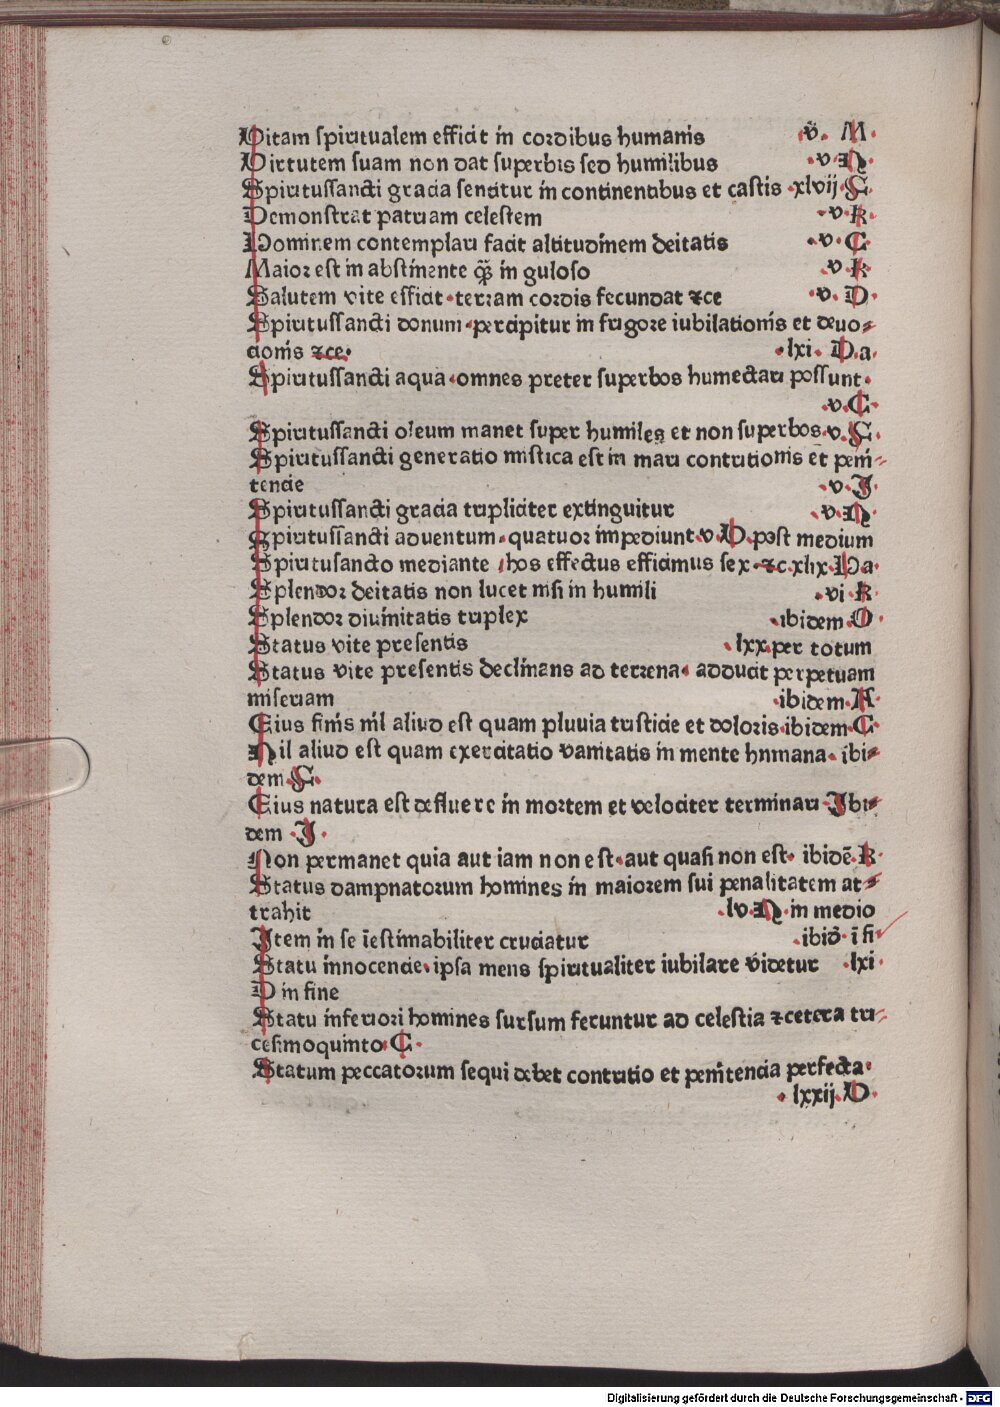 Vitam spiritualem efficit in cordibus humanis .v. M.
Virtutem suam non dat superbis sed humilibus .v. N.
Spiritussancti gracia sentitur in continentibus et castis .xlvij. S.
Demonstrat patriam celestem .v. K.
Hominem contemplari facit altitudinem deitatis .v. C.
Maior est in abstinente q̄ꝫ in guloso .v. K
Salutem vite efficit. terram cordis fecundat ⁊ce .v. D.
Spiritussancti donum. percipitur in frigore iubilationis et deuo⸗
cionis ⁊ce. .lxi. D.a.
Spiritussancti aqua. omnes preter superbos humectari possunt.
.v. C.
Spiritussancti oleum manet super humiles et non superbos. v. S.
Spiritussancti generatio mistica est in mari contritionis et peni⸗
tencie .v. I.
Spiritussancti gracia tripliciter extinguitur .v. N.
Spiritussancti aduentum. quatuor impediunt. v. D. post medium
Spiritusancto mediante, hos effectus efficimus sex. ⁊c. xlix. H a.
Splendor deitatis non lucet nisi in humili .vi. K.
Splendor diuinitatis triplex .ibidem. O.
Status vite presentis .lxx. per totum
Status vite presentis declinans ad terrena. adducit perpetuam
miseriam .ibidem. A.
Eius finis nil aliud est quam pluuia tristicie et doloris. ibidem. C.
Nil aliud est quam exercitatio vanitatis in mente hnmana. ibi⸗
dem. S.
Eius natura est defluere in mortem et velociter terminari. Ibi⸗
dem. I.
Non permanet quia aut iam non est. aut quasi non est. ibidē. K.
Status dampnatorum homines in maiorem sui penalitatem at⸗
trahit .lv. N. in medio
Item in se īestimabiliter cruciatur .ibid. ī fi
Statu innocencie. ipsa mens spiritualiter iubilare videtur .lxi.
D in fine
Statu inferiori homines sursum feruntur ad celestia ⁊cetera tri⸗
cesimoquinto. C.
Statum peccatorum sequi debet contritio et penitencia perfecta.
.lxxij. D.
Digitalisierung gefördert durch die Deutsche Forschungsgemeinschaft - DFG